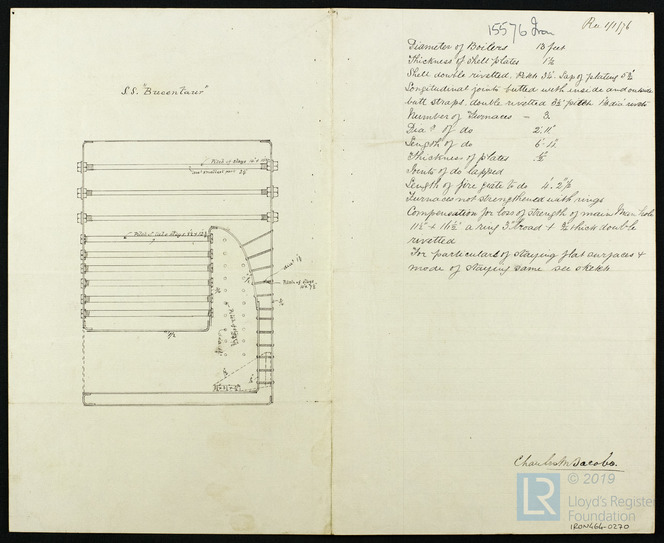 S.S. "Bucentaur"
Pitch of stays
Pitch of stays
15576 Iron
Rec 1/1/76
Diameter of Boilers 13 feet
Thickness of shell plates
Shell double rivetted. Pitch Lap of plating
Longitudinal joints butted with inside and outside
butt straps. double rivetted pitch rivets
Number of Furnaces - 3
Dia.r of do 2'.11"
Length of do
Thickness of plates
Joints of do lapped
Length of fire grate to do
Furnaces not strengthened with rings
Compensation for loss of strength of main Man hole
a ring 3" broad + thick double
rivetted
For particulars of staying flat surfaces +
mode of staying same see sketch
Charles M Jacobs.
LR
© 2019
Lloyd's Register
Foundation
IRON464-0270